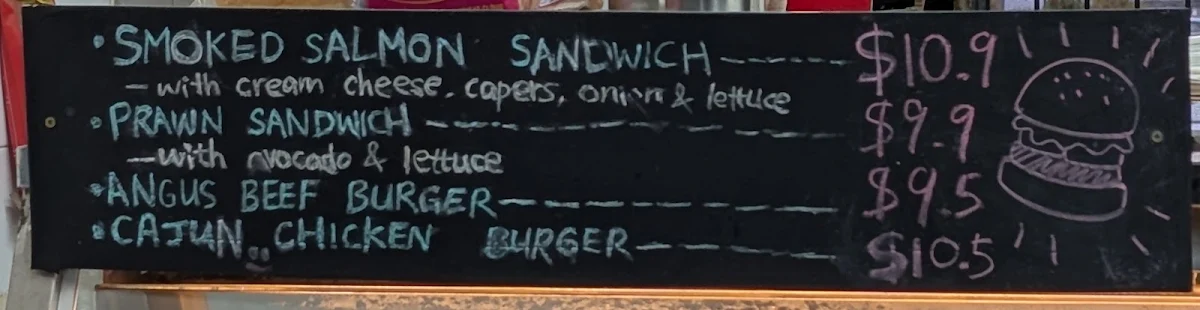 • SMOKED SALMON SANDWICH ------ $10.9
- with cream cheese, capers, onion & lettuce
• PRAWN SANDWICH --------- $9.9
- with avocado & lettuce
• ANGUS BEEF BURGER --------- $9.5
• CAJUN CHICKEN BURGER ------ $10.5